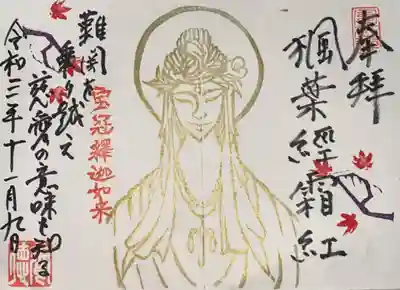 奉拝
楓葉經霜紅
宝冠釋迦如来
難関を
乗り越え
試練の意味を知る
令和三年十一月九日